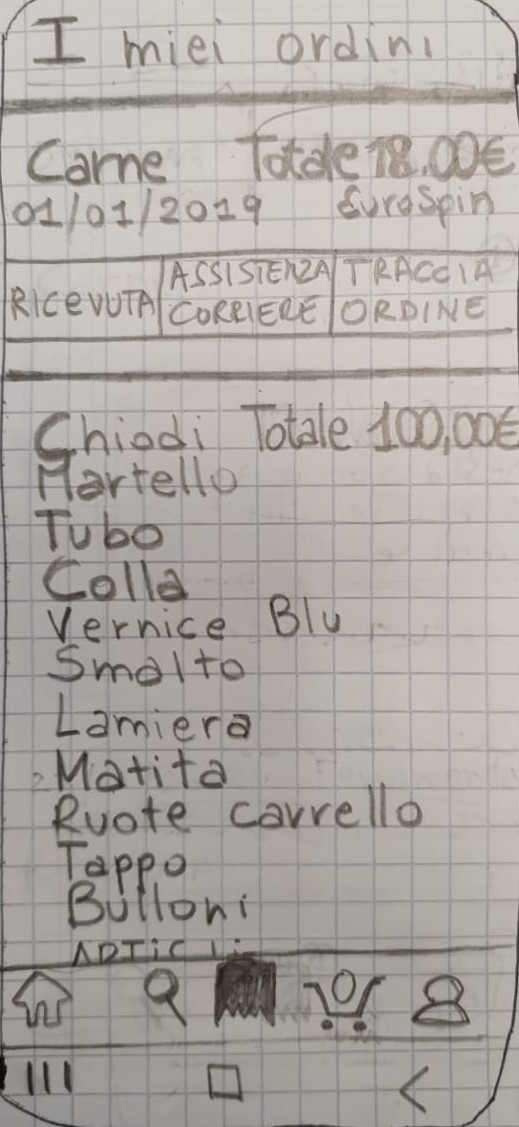 I miei ordini
Carne Totale 18.00€
01/01/2019 EuroSpin
RICEVUTA ASSISTENZA CORRIERE TRACCIA ORDINE
Chiodi Totale 100,00€
Martello
Tubo
Colla
Vernice Blu
Smalto
Lamiera
Matita
Ruote carrello
Tappo
Bulloni